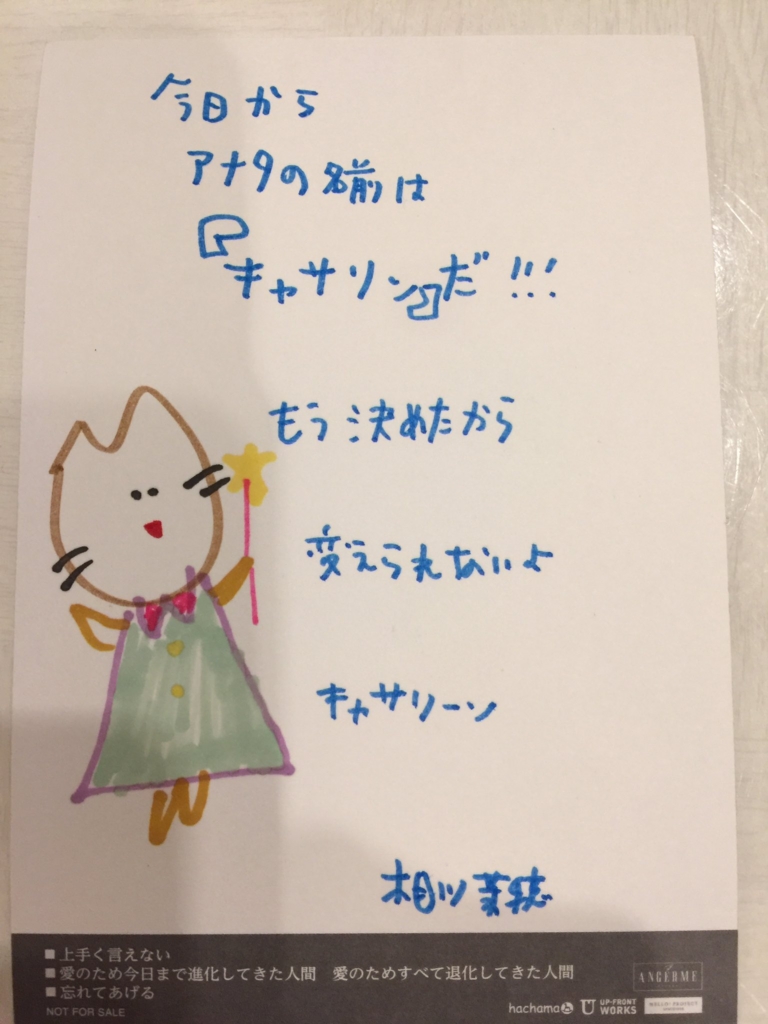 今日から
アナタの名前は
『キャサリン』だ!!!
もう決めたから
変えられないよ
キャサリーン
相川茉穂
■上手く言えない
■愛のため今日まで進化してきた人間　愛のためすべて退化してきた人間
■忘れてあげる
NOT FOR SALE
ANGERME
hachama
UP-FRONT WORKS
HELLO! PROJECT